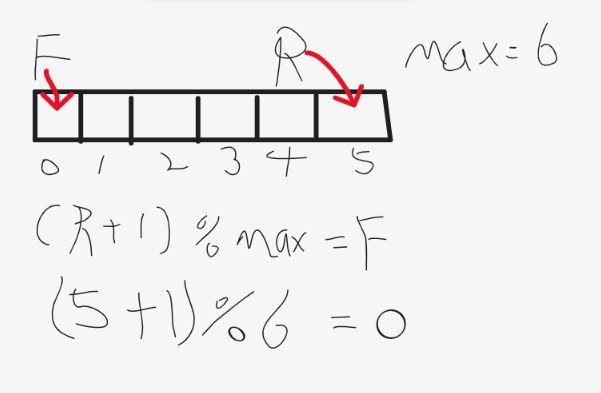 F R max=6
0 1 2 3 4 5
(R+1)%max=F
(5+1)%6=0